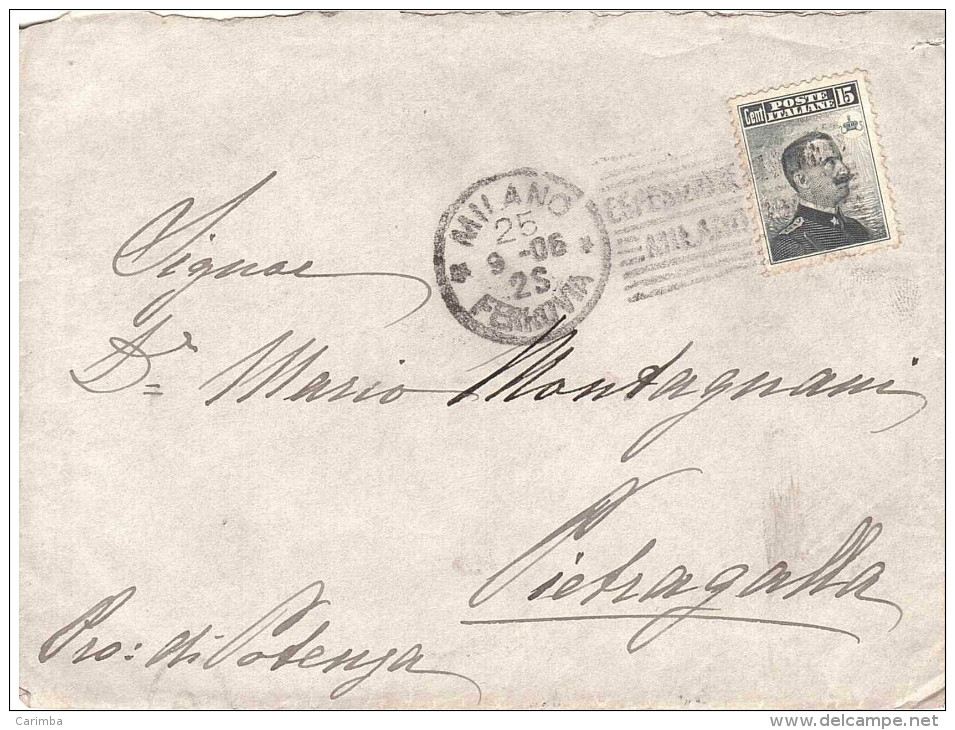 Cent POSTE ITALIANE 15
MILANO
25
9 -06
2S
FERROVIA
ESPOSIZIONE
MILANO
Signor
Dr Mario Montagnani
Pietragalla
Pro: di Potenza
Carimba
www.delcampe.net